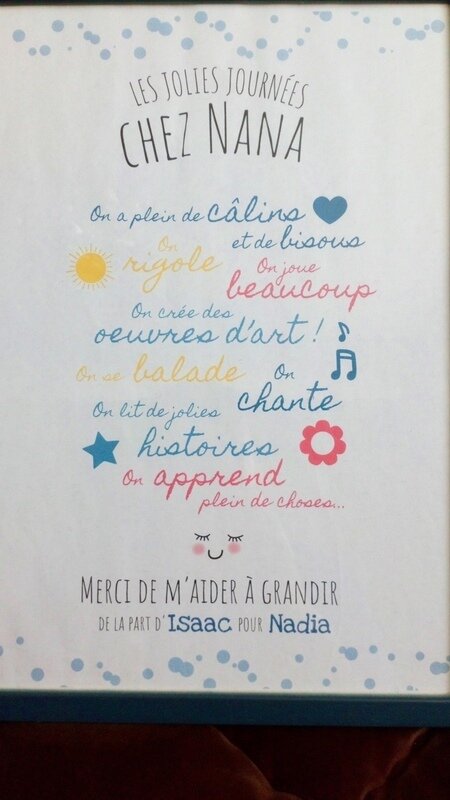 LES JOLIES JOURNÉES
CHEZ NANA
On a plein de câlins
et de bisous
On
rigole
On joue
beaucoup
On crée des
oeuvres d'art !
On se balade
On
chante
On lit de jolies
histoires
On apprend
plein de choses...
MERCI DE M'AIDER À GRANDIR
DE LA PART D'Isaac POUR Nadia